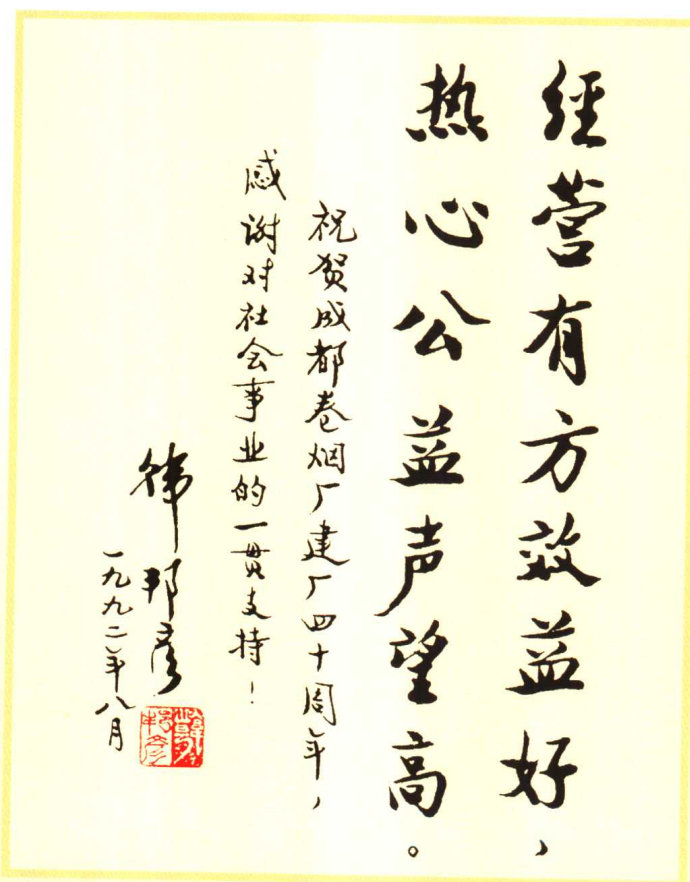 經营有方效益好，
热心公益声望高。
祝贺成都卷烟厂建厂四十周年，
感谢对社会事业的一贯支持！
韩邦彦
一九九二年八月
韓邦彦